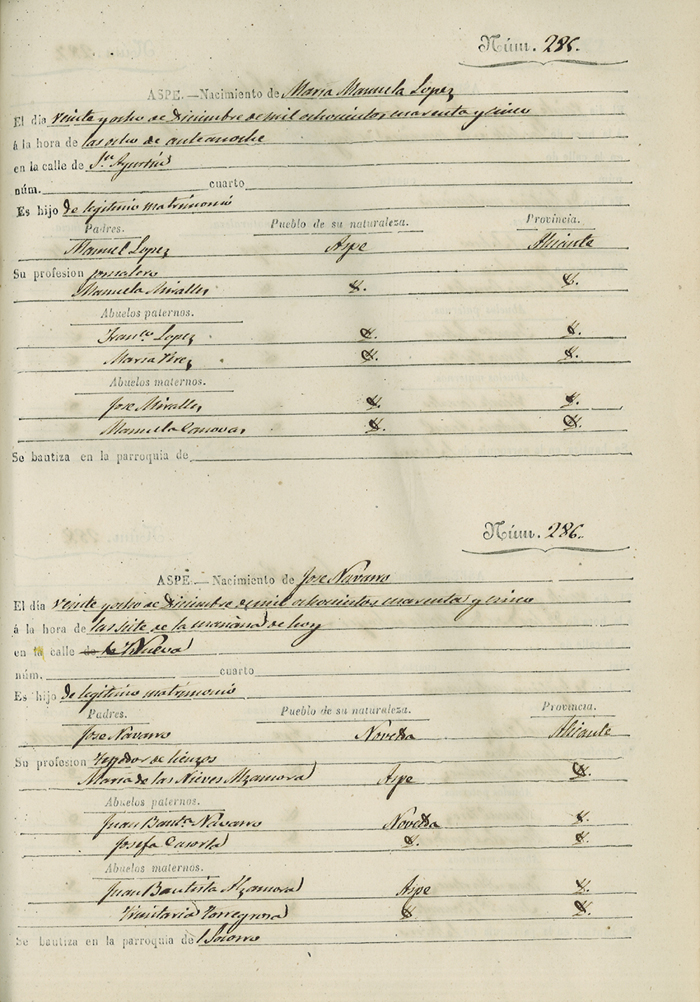 Núm. 285.
ASPE.—Nacimiento de Maria Manuela Lopez
El dia veinte y ocho de Diciembre de mil ochocientos cuarenta y cinco
á la hora de las ocho de anteanoche
en la calle de Sn. Agustin
núm. cuarto
Es hijo de legitimo matrimonio
Padres. Pueblo de su naturaleza. Provincia.
Manuel Lopez Aspe Alicante
Su profesion jornalero
Manuela Miralles Y. Y.
Abuelos paternos.
Franco. Lopez Y. Y.
Maria Perez Y. Y.
Abuelos maternos.
Jose Miralles Y. Y.
Manuela Canovas Y. Y.
Se bautiza en la parroquia de
Núm. 286.
ASPE.—Nacimiento de Jose Navarro
El dia veinte y ocho de Diciembre de mil ochocientos cuarenta y cinco
á la hora de las siete de la mañana de hoy
en la calle de la Nueva
núm. cuarto
Es hijo de legitimo matrimonio
Padres. Pueblo de su naturaleza. Provincia.
Jose Navarro Novelda Alicante
Su profesion tejedor de lienzos
Maria de las Nieves Alzamora Aspe Y.
Abuelos paternos.
Juan Bauta. Navarro Novelda Y.
Josefa Cazorla Y. Y.
Abuelos maternos.
Juan Bautista Alzamora Aspe Y.
Trinitaria Torregrosa Y. Y.
Se bautiza en la parroquia de l Socorro